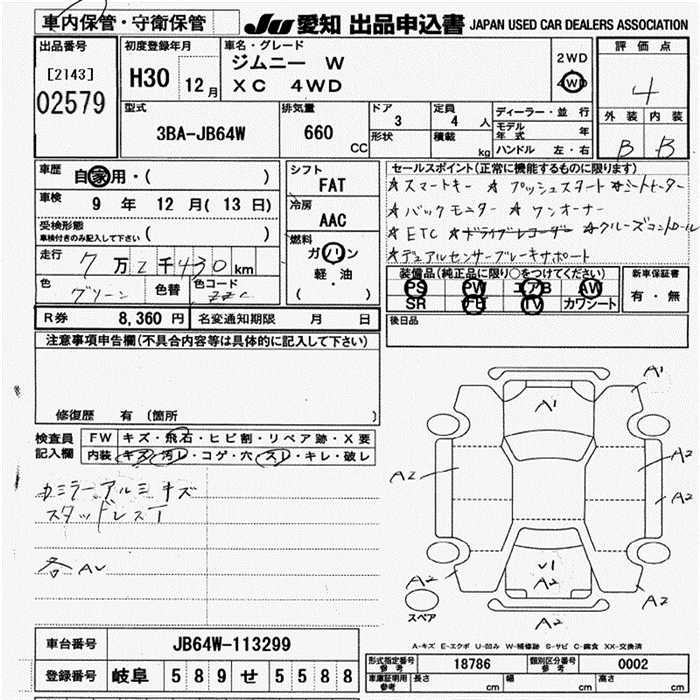 車内保管・守衛保管
JU 愛知 出品申込書 JAPAN USED CAR DEALERS ASSOCIATION
出品番号
[2143]
02579
初度登録年月
H30 12月
車名・グレード
ジムニー W
XC 4WD
2WD
4WD
評価点
4
外装 内装
B B
型式
3BA-JB64W
排気量
660 CC
ドア 3
形状
定員 4 人
積載 kg
ディーラー・並行
モデル年式 年
ハンドル 左・右
車歴 自家用・( )
車検 9 年 12 月 ( 13 日)
受検形態
車検付きのみ記入して下さい ( )
走行 7万2千430 km
色 グリーン 色替 色コード ZZC
シフト
FAT
冷房
AAC
燃料
ガソリン
軽・油
( )
セールスポイント(正常に機能するものに限ります)
★スマートキー ★プッシュスタート ★シートヒーター
★バックモニター ★ワンオーナー
★ETC ★ドライブレコーダー ★クルーズコントロール
★デュアルセンサーブレーキサポート
装備品(純正品に限り○をつけてください)
PS PW エアB AW
SR TV カワシート
新車保証書
有・無
後日品
R券 8,360 円 名変通知期限 月 日
注意事項申告欄(不具合内容等は具体的に記入して下さい)
修復歴 有 (箇所 )
検査員記入欄
FW キズ・飛石・ヒビ割・リペア跡・X要
内装 キズ・汚レ・コゲ・穴・スレ・キレ・破レ
ミラー、アルミキズ
スタッドレスT
各AU
A1
A1
A2
A2
A2
U1
A2
A2
A2
A2
スペア
A-キズ E-エクボ U-凹み W-補修跡 S-サビ C-腐食 XX-交換済
車台番号 JB64W-113299
登録番号 岐阜 589 せ 5588
形式指定番号 参考 18786 類別区分番号 参考 0002
車庫証明用 参考 長さ cm 幅 cm 高さ cm